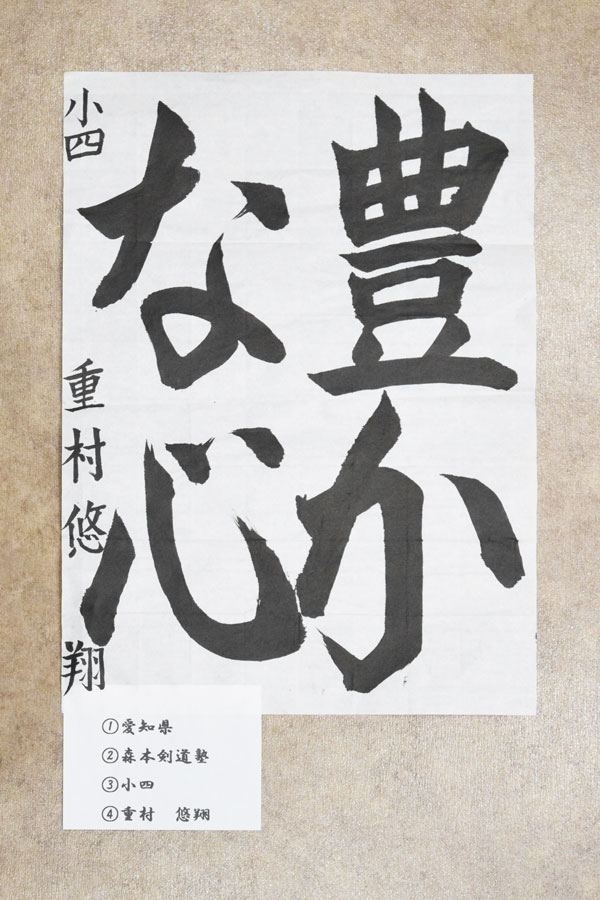 豊か
な心
小四 重村悠翔
①愛知県
②森本剣道塾
③小四
④重村 悠翔